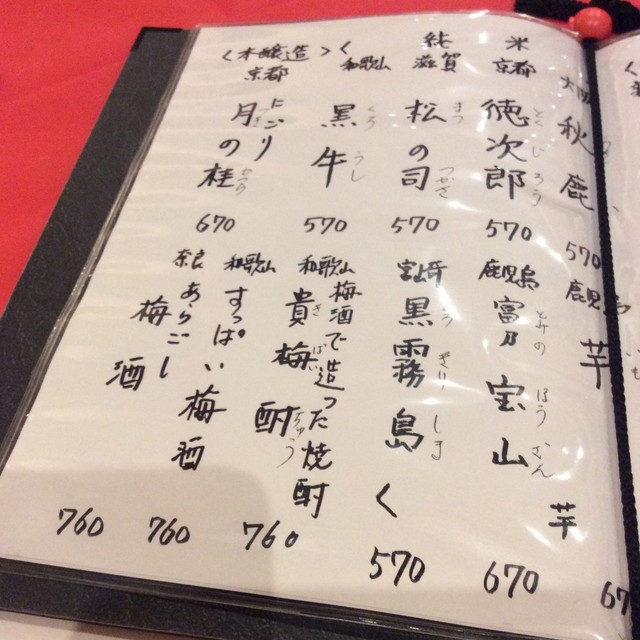 大阪
秋鹿
570
鹿児島
芋
67
米
京都
徳次郎
とくじろう
570
鹿児島
富乃宝山
とみの ほうざん
芋
670
純
滋賀
松の司
まつ つかさ
570
宮崎
黒霧島
くろ きり しま
く
570
く
和歌山
黒牛
くろ うし
570
和歌山
梅酒で造った焼酎
貴梅酎
き ばい ちゅう
760
〈本醸造〉
京都
にごり
月の桂
つき かつら
670
和歌山
すっぱい梅酒
760
奈良
あらごし
梅酒
760